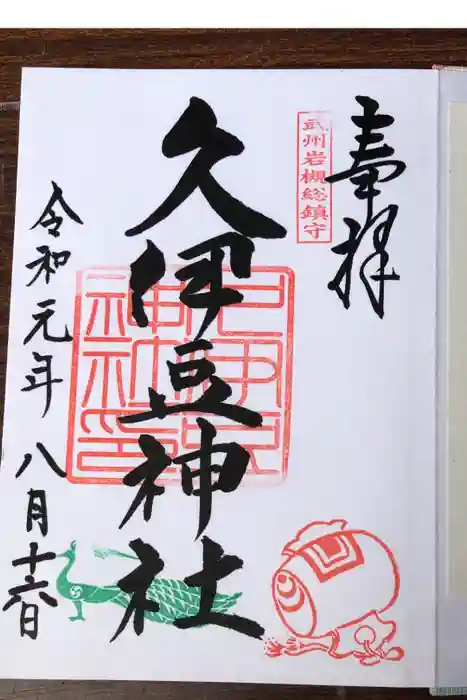 奉拝
武州岩槻総鎮守
久伊豆神社
久伊豆神社印
令和元年八月十六日